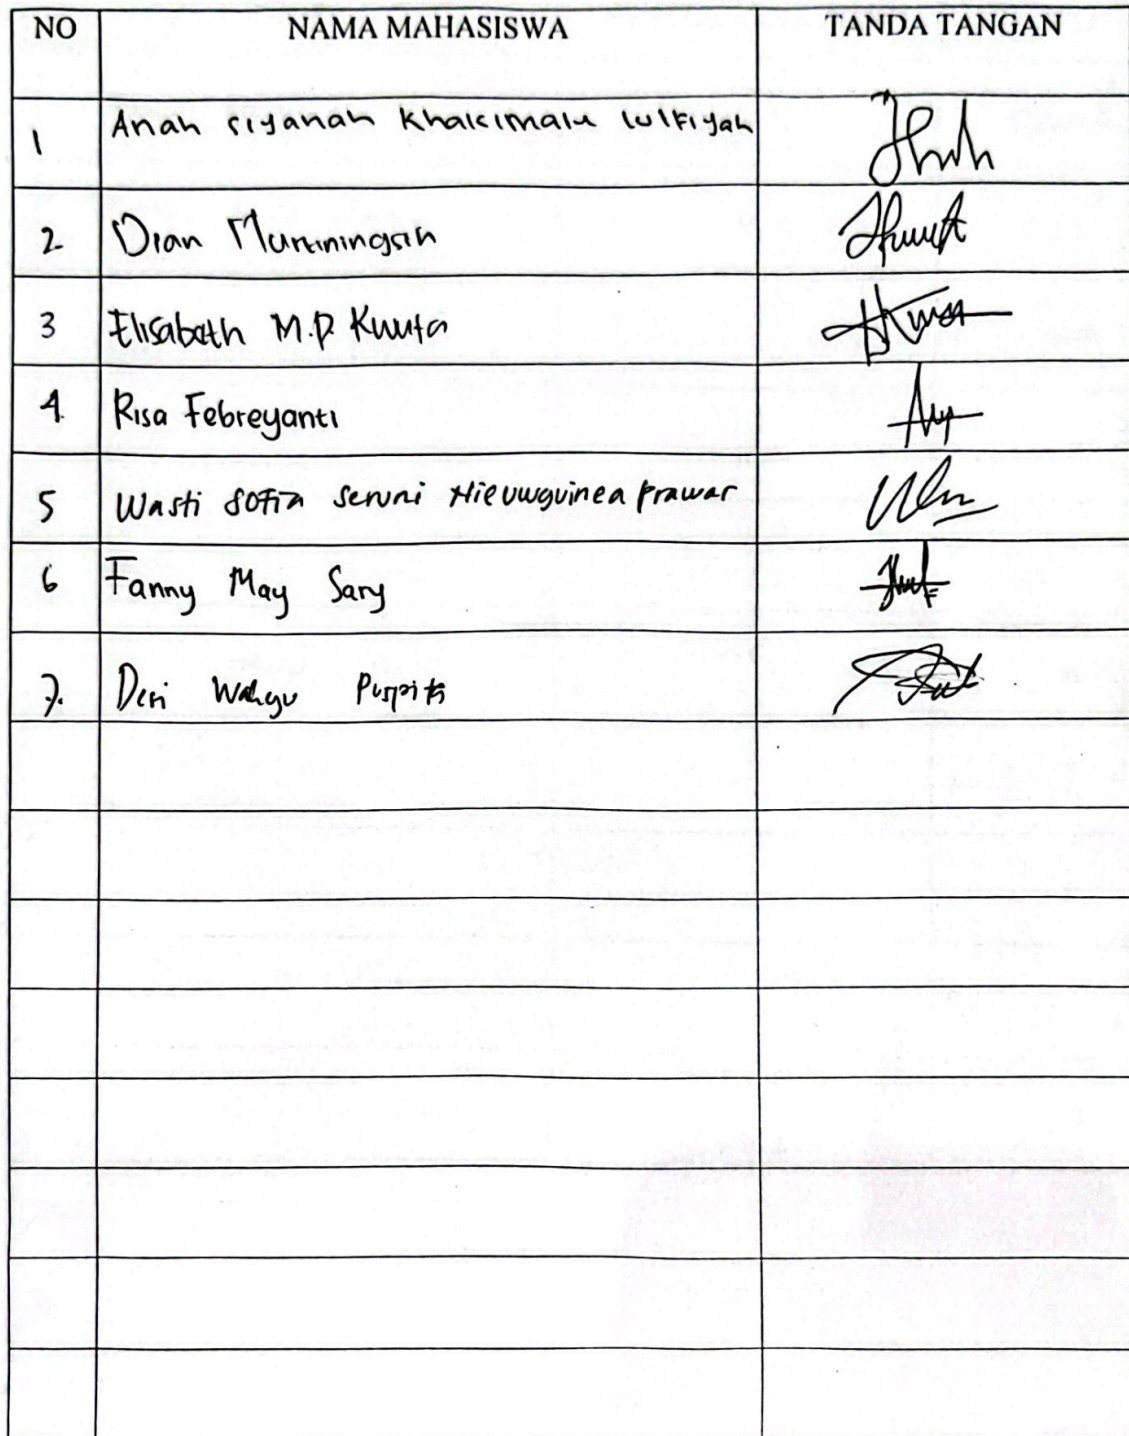 NO NAMA MAHASISWA TANDA TANGAN
1 Anah siyanah Khakimalu lutfiyah
2. Dian Murniningsih
3 Elisabeth M.P. Kwuta
4. Risa Febreyanti
5 Wasti Sofia Seruni Nieuwguinea Prawar
6 Fanny May Sary
7. Deri Wahyu Puspita